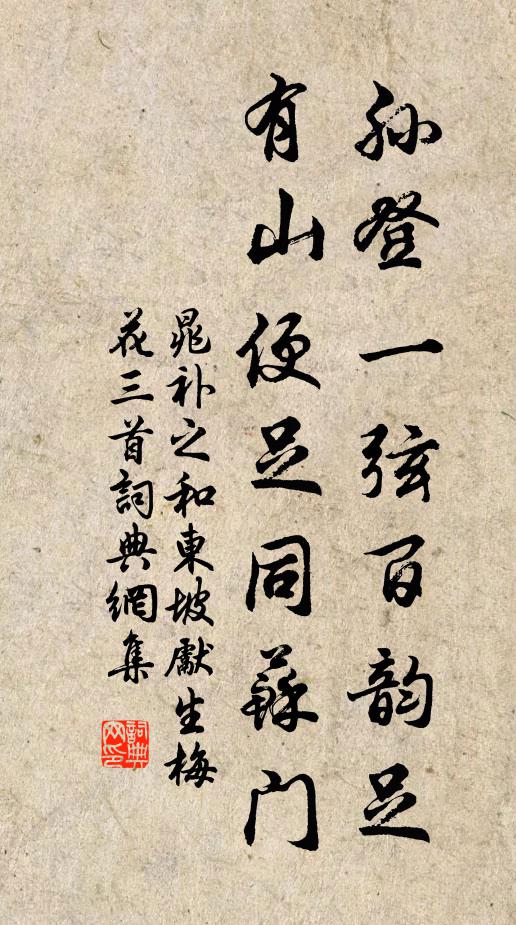 孙登一弦百韵足
有山便足同蘇门
晁补之和東坡獻生梅
花三首詞典網集
詞典网印